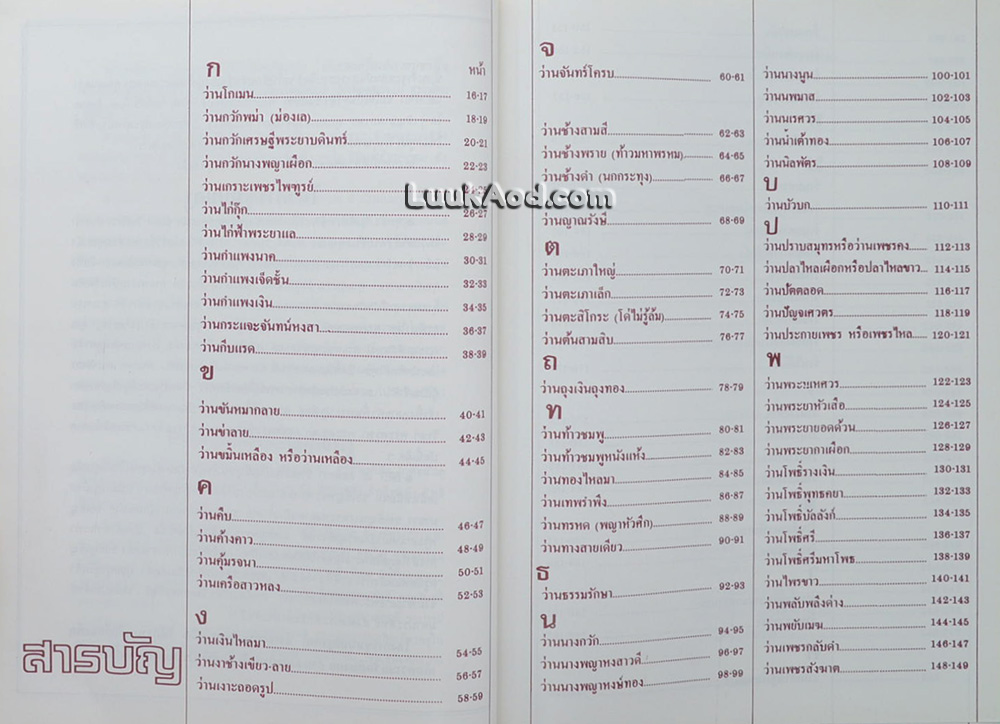 สารบัญ
ก
หน้า
ว่านโกเมน 16-17
ว่านกวักพม่า (ม่องเล) 18-19
ว่านกวักเศรษฐีพระยาบดินทร์ 20-21
ว่านกวักนางพญาเผือก 22-23
ว่านเกราะเพชรไพฑูรย์
ว่านไก่กุ๊ก 26-27
ว่านไก่ฟ้าพระยาแล 28-29
ว่านกำแพงนาค 30-31
ว่านกำแพงเจ็ดชั้น 32-33
ว่านกำแพงเงิน 34-35
ว่านกระแจะจันทน์หงสา 36-37
ว่านกีบแรด 38-39
ข
ว่านขันหมากลาย 40-41
ว่านข่าลาย 42-43
ว่านขมิ้นเหลือง หรือว่านเหลือง 44-45
ค
ว่านคืบ 46-47
ว่านค้างคาว 48-49
ว่านคุ้มรจนา 50-51
ว่านเครือสาวหลง 52-53
ง
ว่านเงินไหลมา 54-55
ว่านงาช้างเขียว-ลาย 56-57
ว่านเงาะถอดรูป 58-59
LuukAod.com
จ
ว่านจันทร์โครบ 60-61
ว่านช้างสามสี 62-63
ว่านช้างพราย (ท้าวมหาพรหม) 64-65
ว่านช้างดำ (นกกระทุง) 66-67
ว่านญาณรังษี 68-69
ต
ว่านตะเภาใหญ่ 70-71
ว่านตะเภาเล็ก 72-73
ว่านตะสิโกระ (โด่ไม่รู้ล้ม) 74-75
ว่านต้นสามสิบ 76-77
ถ
ว่านถุงเงินถุงทอง 78-79
ท
ว่านท้าวชมพู 80-81
ว่านท้าวชมพูหนังแห้ง 82-83
ว่านทองไหลมา 84-85
ว่านเทพรำพึง 86-87
ว่านทรหด (พญาหัวศึก) 88-89
ว่านทางสายเดียว 90-91
ธ
ว่านธรรมรักษา 92-93
น
ว่านนางกวัก 94-95
ว่านนางพญาหงสาวดี 96-97
ว่านนางพญาหงษ์ทอง 98-99
ว่านนางนูน 100-101
ว่านนพมาส 102-103
ว่านนเรศวร 104-105
ว่านน้ำเต้าทอง 106-107
ว่านนิลพัตร 108-109
บ
ว่านบัวบก 110-111
ป
ว่านปราบสมุทรหรือว่านเพชรคง 112-113
ว่านปลาไหลเผือกหรือปลาไหลขาว 114-115
ว่านปัดตลอด 116-117
ว่านปัญจเศวตร 118-119
ว่านประกายเพชร หรือเพชรไหล 120-121
พ
ว่านพระยเหศวร 122-123
ว่านพระยาหัวเสือ 124-125
ว่านพระยายอดด้วน 126-127
ว่านพระยากาเผือก 128-129
ว่านโพธิ์รางเงิน 130-131
ว่านโพธิ์พุทธคยา 132-133
ว่านโพธิ์บัลลังก์ 134-135
ว่านโพธิ์ศรี 136-137
ว่านโพธิ์ศรีมหาโพธ 138-139
ว่านไพรขาว 140-141
ว่านพลับพลึงด่าง 142-143
ว่านพยับเมฆ 144-145
ว่านเพชรกลับดำ 146-147
ว่านเพชรสังฆาต 148-149